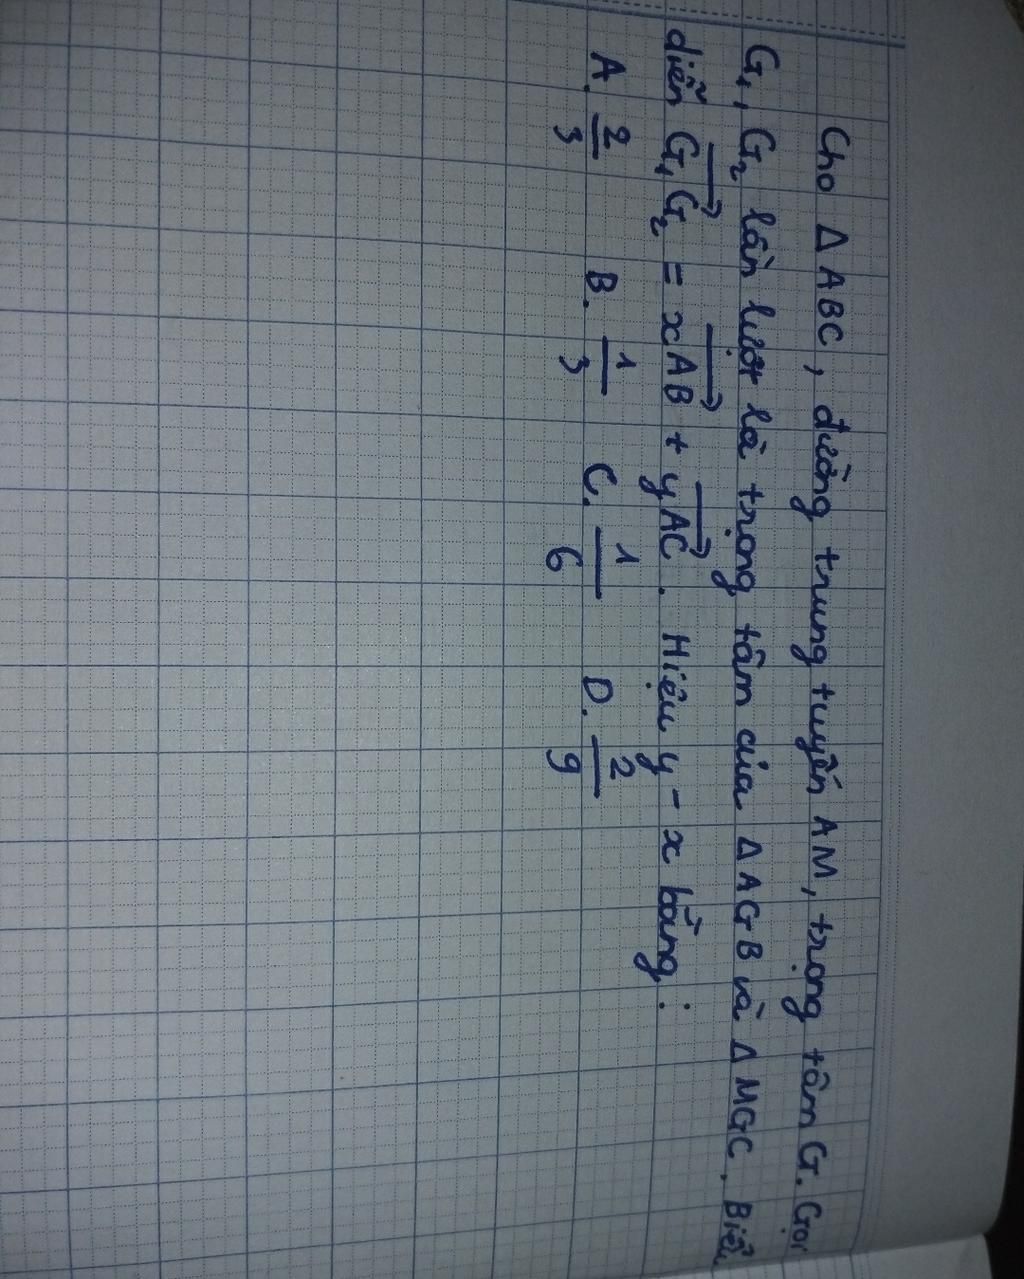 Cho Δ ABC, đường trung tuyến AM, trọng tâm G. Gọi
G₁, G₂ lần lượt là trọng tâm của Δ AGB và Δ MGC. Biểu
diễn $\overrightarrow{G_1G_2} = x\overrightarrow{AB} + y\overrightarrow{AC}$. Hiệu y - x bằng :
A. $\frac{2}{3}$ B. $\frac{1}{3}$ C. $\frac{1}{6}$ D. $\frac{2}{9}$